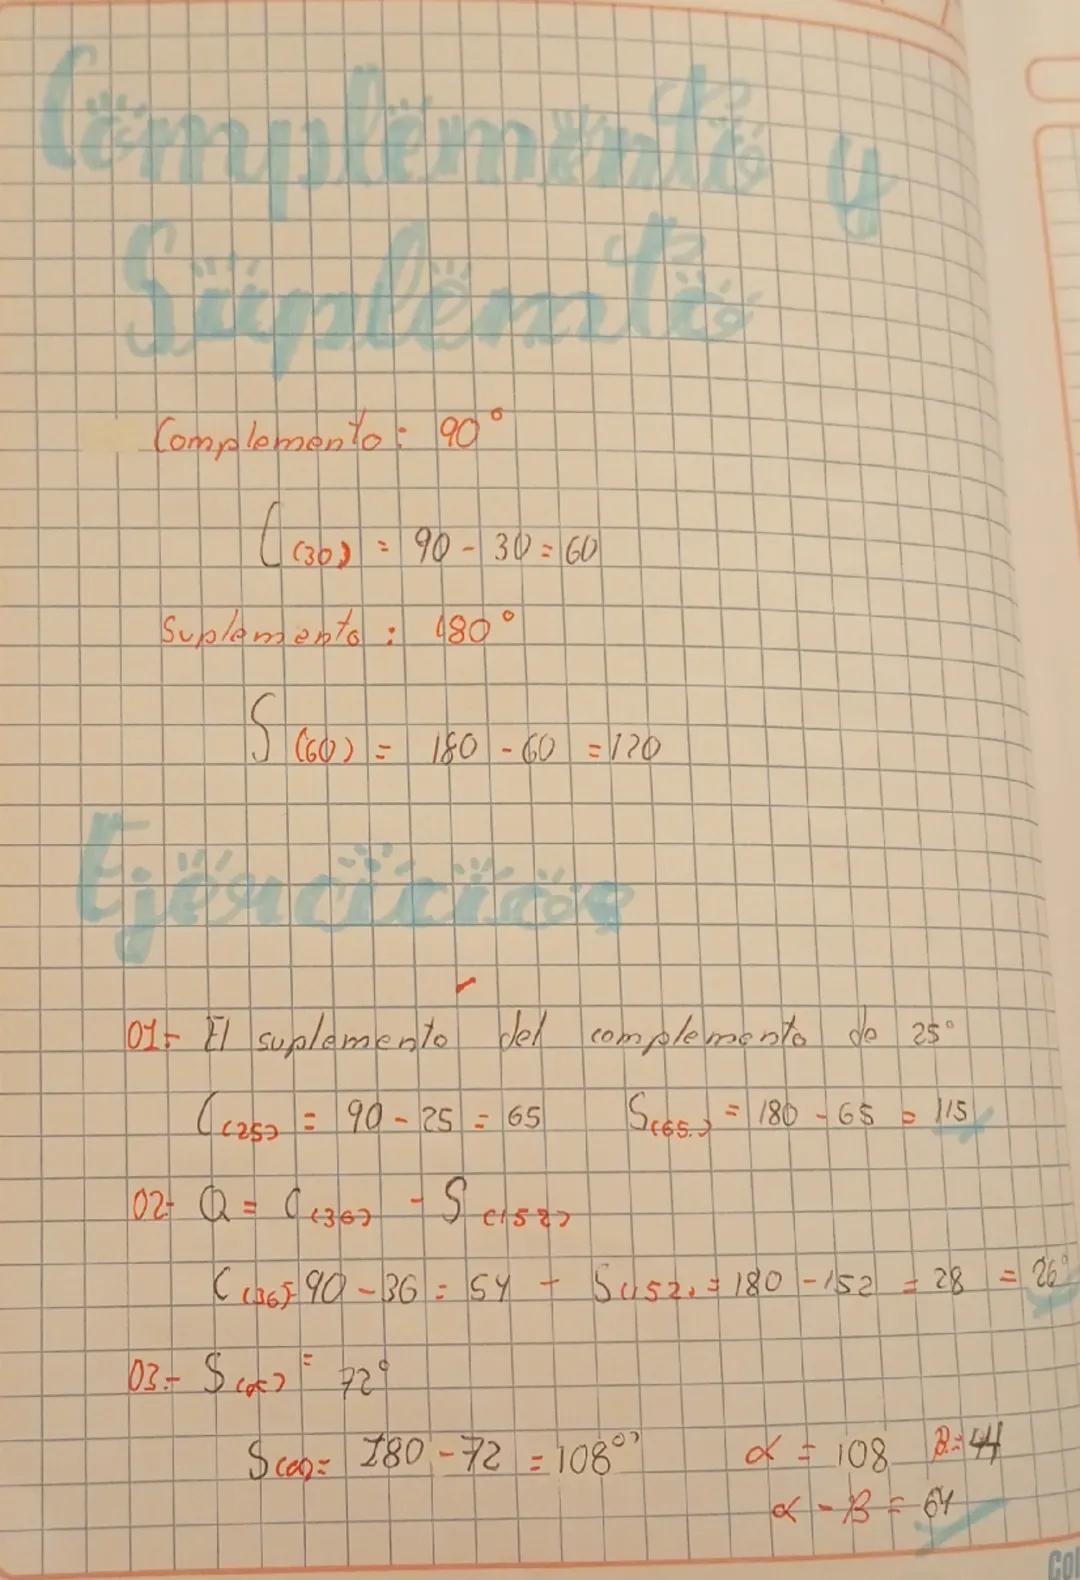 Complemento y
Suplemento
Complemento: 90°
C(30) = 90 - 30 = 60
Suplemento: 180°
S(60) = 180 - 60 = 120
Ejercicios
01- El suplemento del complemento de 25°
C(25) = 90 - 25 = 65 S(65) = 180 - 65 = 115
02- Q = C(36) - S(152)
C(36) = 90 - 36 = 54 - S(152) = 180 - 152 = 28 = 26°
03.- S(α) = 72°
S(α) = 180 - 72 = 108° α = 108 β = 44
α - β = 64
Col